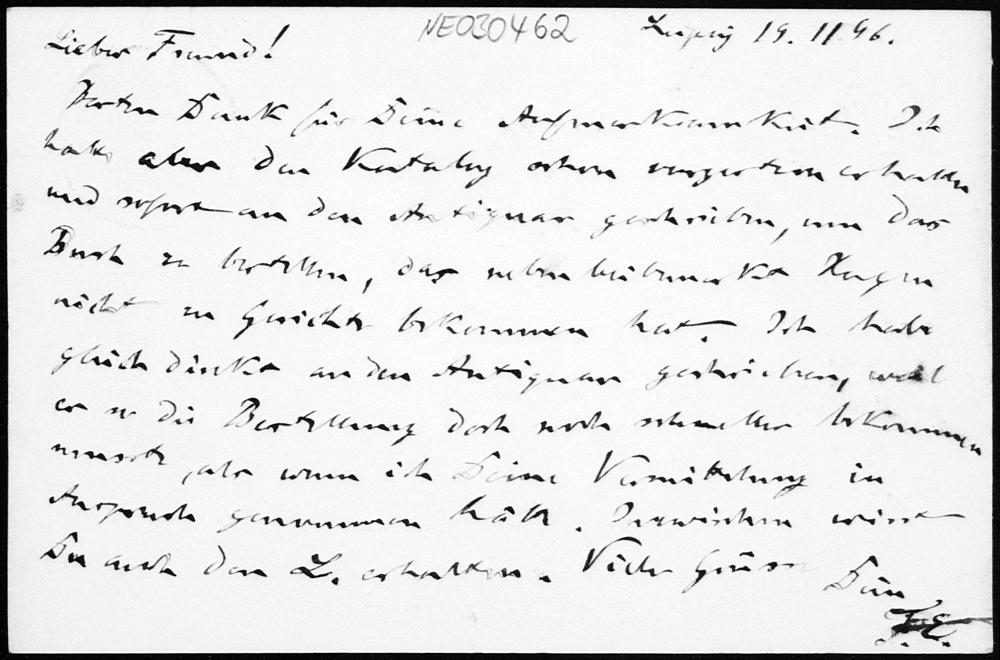 NE030462
Leipzig 19. 11 96.
Lieber Freund!
Besten Dank für Deine Aufmerksamkeit. Ich
hatte aber den Katalog schon vorgestern erhalten
und sofort an den Antiquar geschrieben, um das
Buch zu bestellen, das neben bei bemerkt
nicht zu Gesichte bekommen hat. Ich habe
gleich direkt an den Antiquar geschrieben, weil
er so die Bestellung doch noch schneller bekommen
musste, als wenn ich Deine Vermittelung in
Anspruch genommen hätte. Inzwischen wirst
Du auch den L. erhalten. Viele Grüsse Dein
F. E.